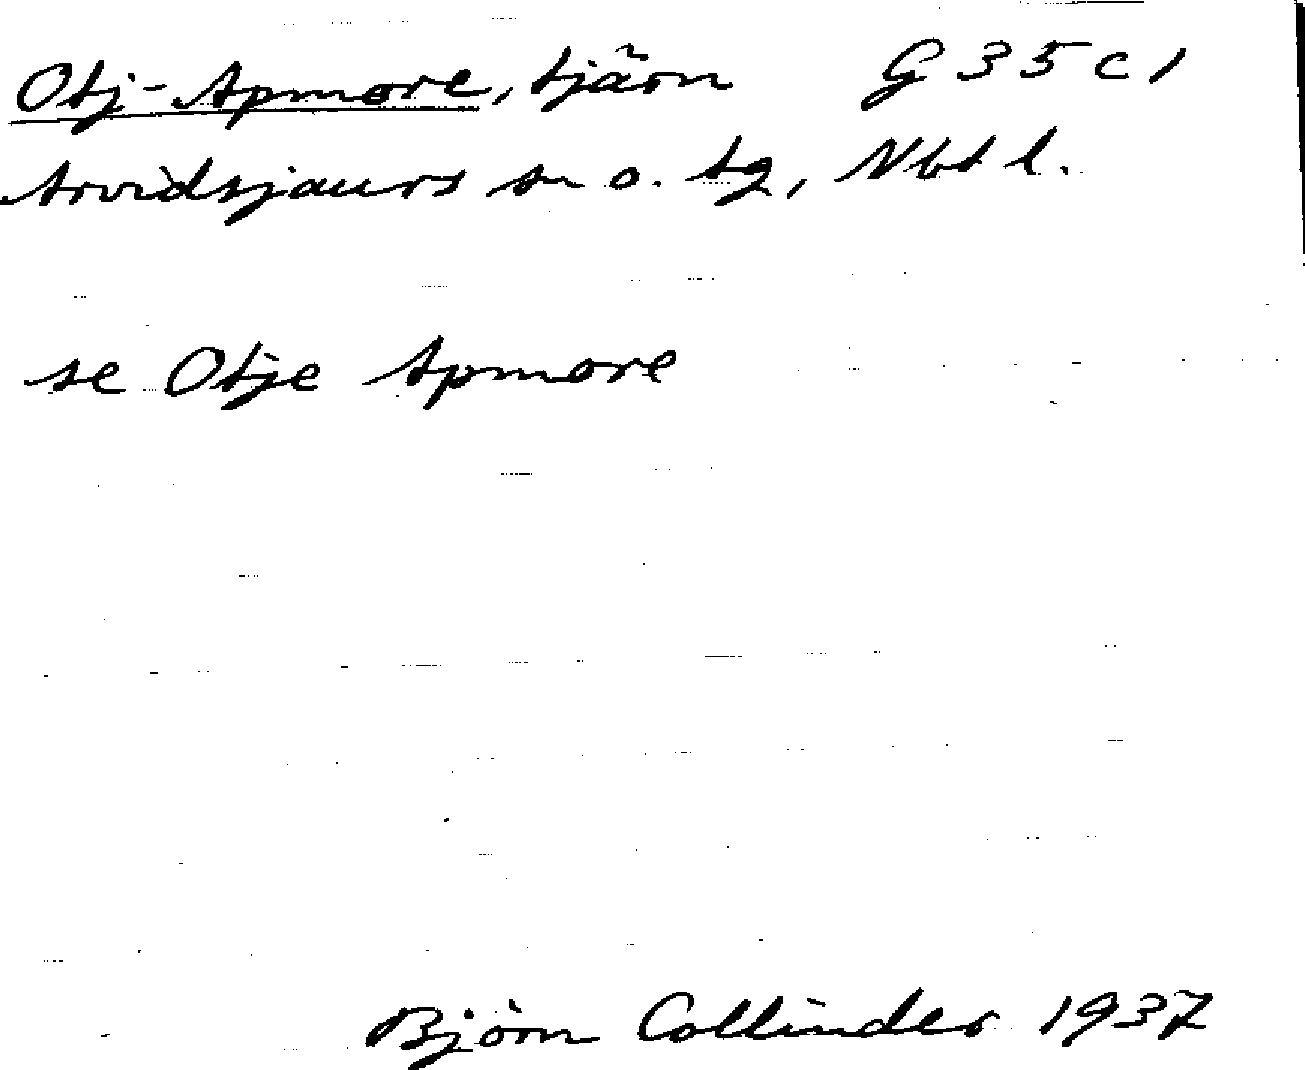 Otj-Apmore, tjärn G 35 c 1
Arvidsjaurs sn o. tg, Nbt l.
se Otje Apmore
Björn Collinder 1937